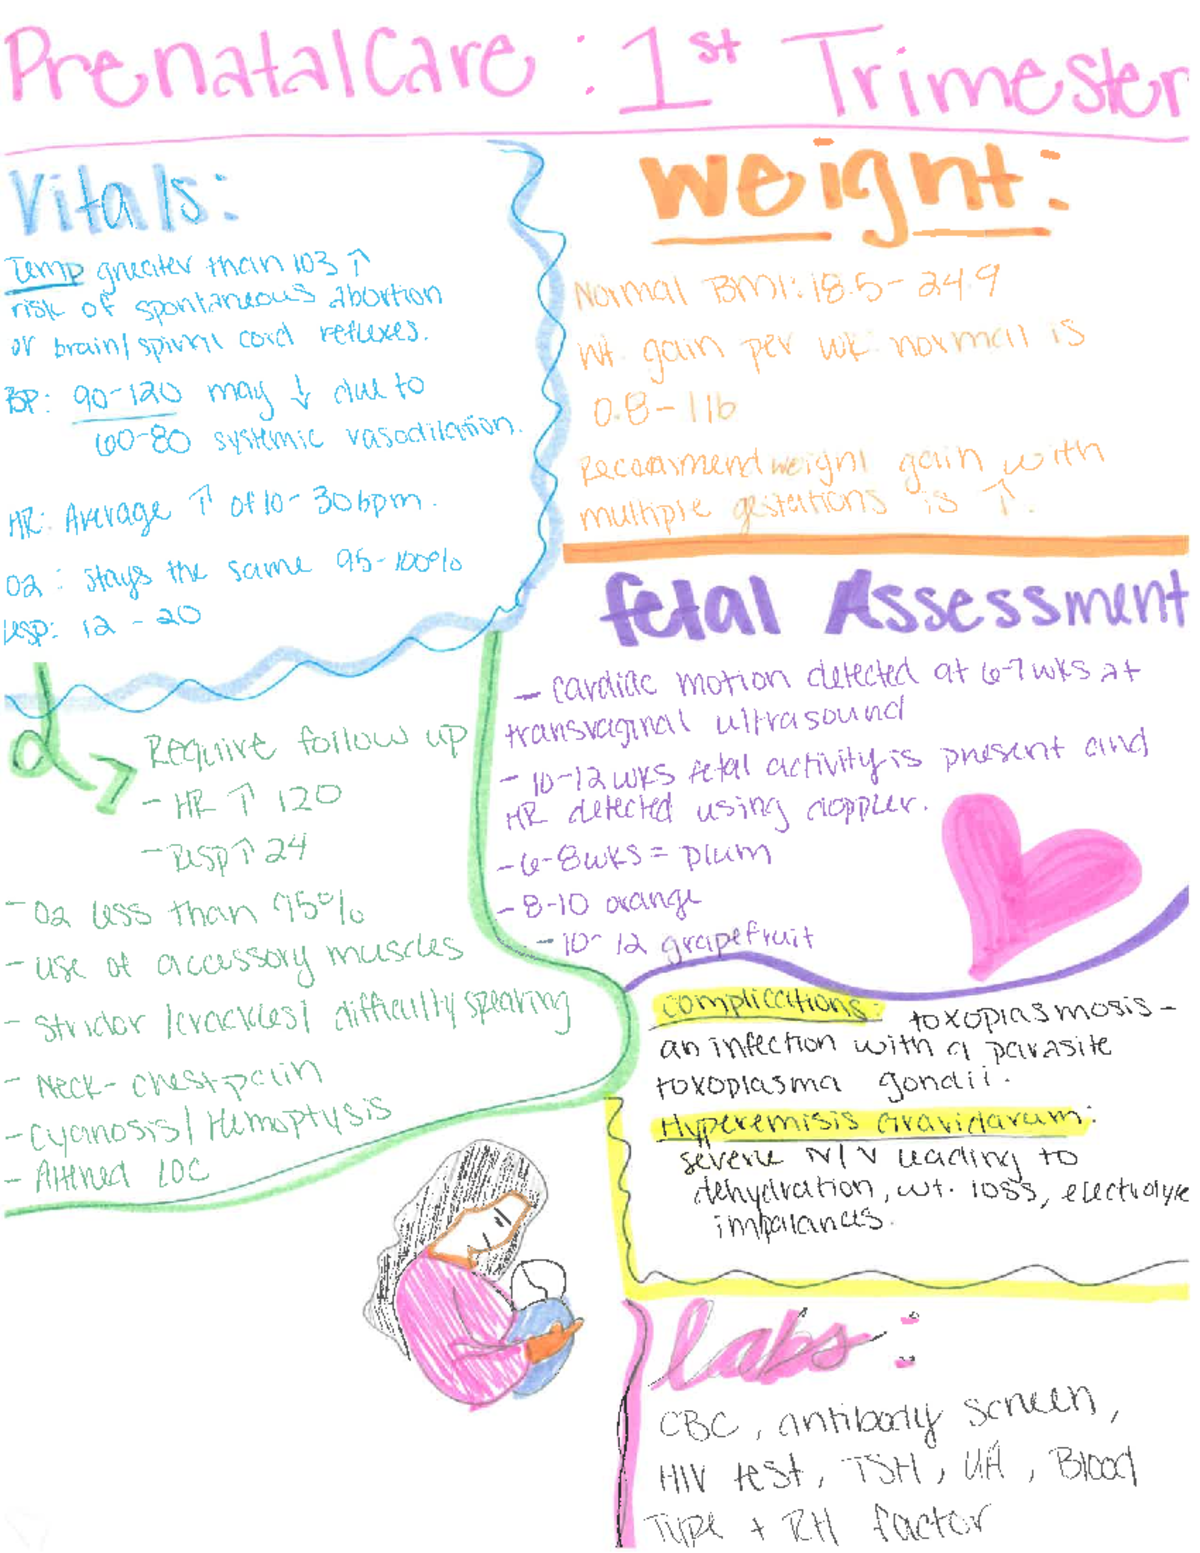 Prenatal Care : 1st Trimester
Vitals:
Temp greater than 103 ↑
risk of spontaneous abortion
or brain/spinal cord reflexes.
BP: 90-120 may ↓ due to
60-80 systemic vasodilation.
HR: Average ↑ of 10-30bpm.
O2 : stays the same 95-100%
Resp: 12 - 20
Require follow up
- HR ↑ 120
- Resp ↑ 24
- O2 less than 95%
- use of accessory muscles
- Stridor /crackles/ difficulty speaking
- Neck- chest-pain
- Cyanosis/ Hemoptysis
- Altered LOC
Weight:
Normal BMI: 18.5-24.9
Wt. gain per wk: normall is
0.8-1 lb
Recommend weight gain with
multiple gestations is ↑.
fetal Assessment
- cardiac motion detected at 6-7wks at
transvaginal ultrasound
- 10-12wks fetal activity is present and
HR detected using doppler.
- 6-8wks = plum
- 8-10 orange
- 10-12 grapefruit
complications: toxoplasmosis-
an infection with a parasite
toxoplasma gondii.
Hyperemisis Gravidarum:
severe N/V leading to
dehydration, wt. loss, electrolyte
imbalances.
labs:
CBC, antibody screen,
HIV test, TSH, UA, Blood
Type + RH factor